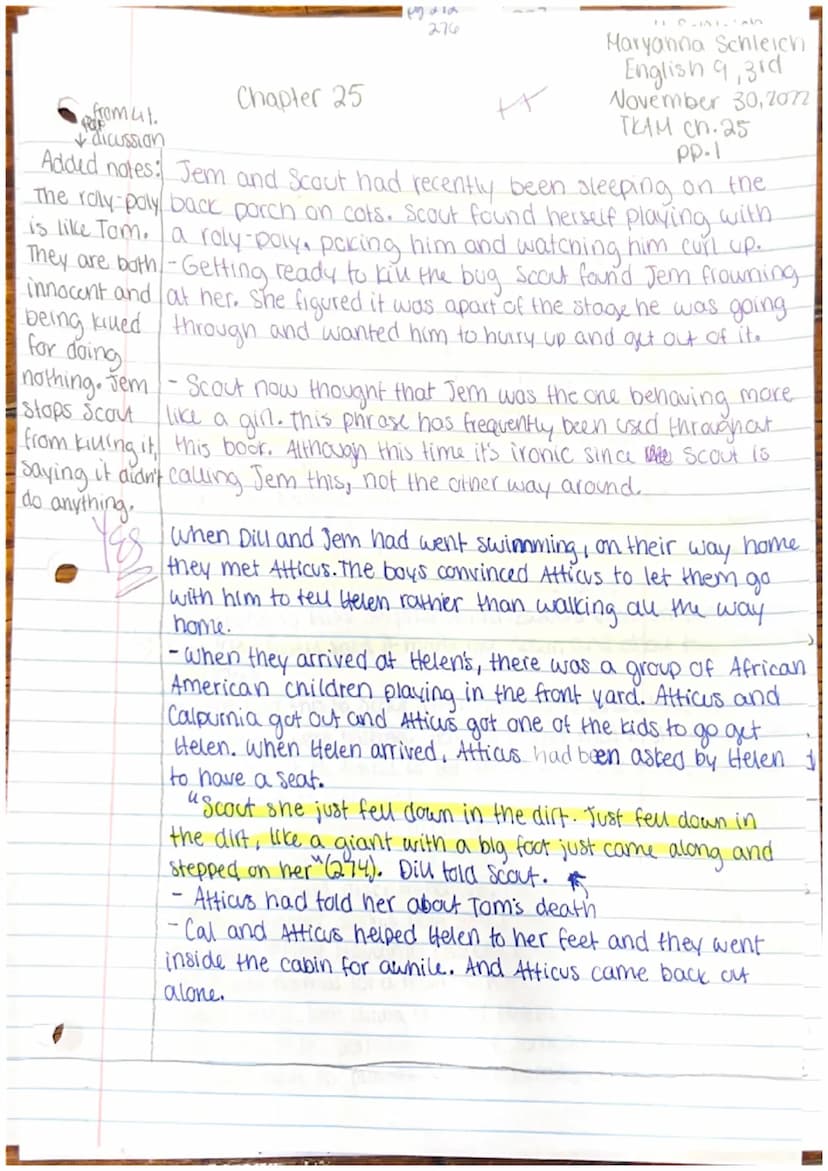 276
Maryanna Schleich
English 9, 3rd
November 30, 2022
TKAM Ch. 25
pp. 1
Chapter 25
++
from 4/1.
↓ dicussion
Added notes:
The roly-poly
is like Tom.
They are both
innocent and
being killed
for doing
nothing. Jem
stops Scout
from killing it,
saying it didn't
do anything.
Yes
Jem and Scout had recently been sleeping on the
back porch on cots. Scout found herself playing with
a roly-poly, poking him and watching him curl up.
- Getting ready to kill the bug Scout found Jem frowning
at her. She figured it was apart of the stage he was going
through and wanted him to hurry up and get out of it.
- Scout now thought that Jem was the one behaving more
like a girl. This phrase has frequently been used throughout
this book. Although this time it's ironic since Scout is
calling Jem this, not the other way around.
When Dill and Jem had went swimming, on their way home
they met Atticus. The boys convinced Atticus to let them go
with him to tell Helen rather than walking all the way
home.
- When they arrived at Helen's, there was a group of African
American children playing in the front yard. Atticus and
Calpurnia got out and Atticus got one of the kids to go get
Helen. When Helen arrived, Atticus had been asked by Helen
to have a seat.
"Scout she just fell down in the dirt. Just fell down in
the dirt, like a giant with a big foot just came along and
stepped on her" (274). Dill told Scout.
- Atticus had told her about Tom's death
- Cal and Atticus helped Helen to her feet and they went
inside the cabin for awhile. And Atticus came back out
alone.